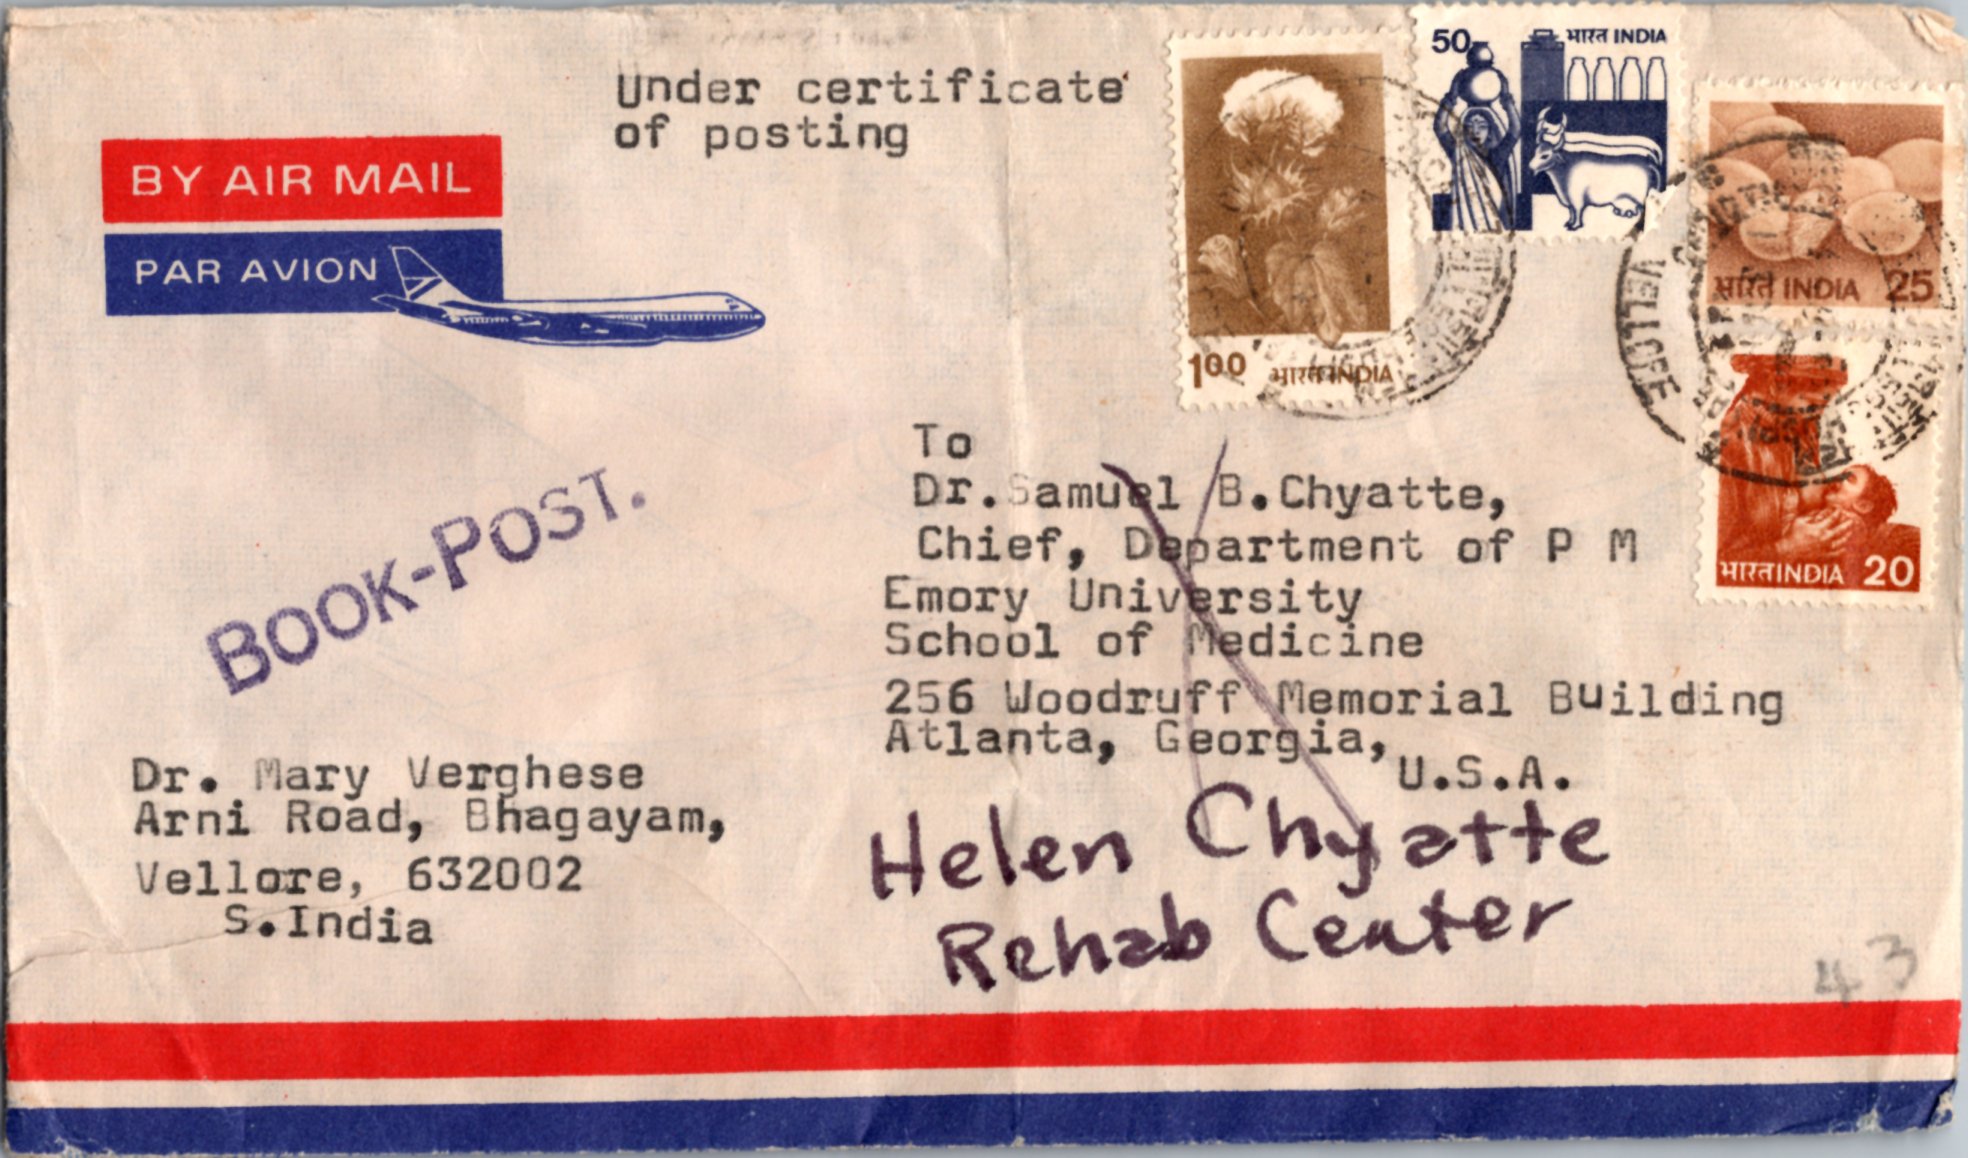 Under certificate
of posting
BY AIR MAIL
PAR AVION
100 भारत INDIA
50 भारत INDIA
भारत INDIA 25
भारत INDIA 20
VELLORE
BOOK-POST.
To
Dr. Samuel B. Chyatte,
Chief, Department of P M
Emory University
School of Medicine
256 Woodruff Memorial Building
Atlanta, Georgia,
U.S.A.
Dr. Mary Verghese
Arni Road, Bhagayam,
Vellore, 632002
S. India
Helen Chyatte
Rehab Center
43